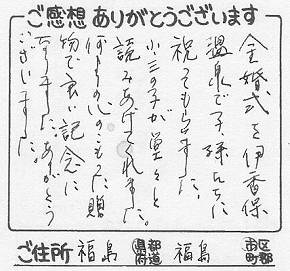 ご感想ありがとうございます
金婚式を伊香保
温泉で子、孫たちに
祝ってもらいました。
小三の子が堂々と
読みあげてくれました。
何より心のこもった贈
物で良い記念に
なりました。ありがとう
ございました。
ご住所 福島 都道府県 福島 市区町郡